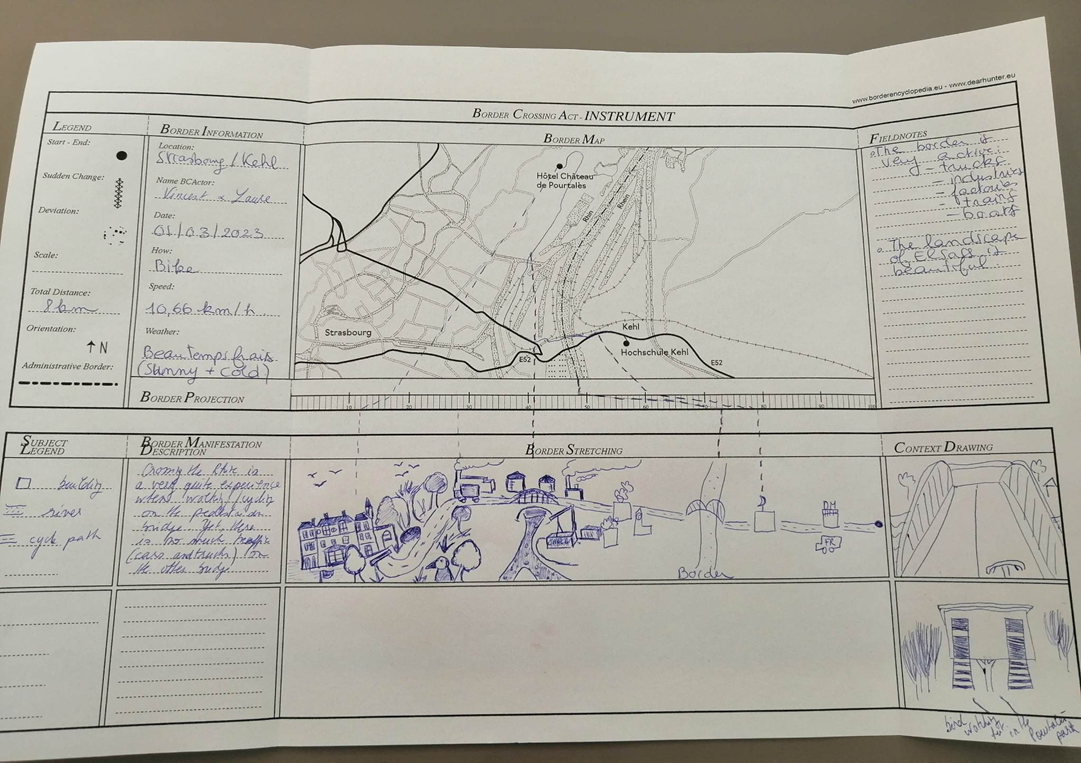 www.borderencyclopedia.eu - www.dearhunter.eu
BORDER CROSSING ACT - INSTRUMENT
LEGEND
Start - End:
Sudden Change:
Deviation:
Scale:
Total Distance:
8 km
Orientation:
N
Administrative Border:
BORDER INFORMATION
Location:
Strasbourg / Kehl
Name BCActor:
Vincent & Laure
Date:
01/03/2023
How:
Bike
Speed:
10,66 km/h
Weather:
Beau temps frais
(Sunny + cold)
BORDER MAP
Hôtel Château
de Pourtalès
Rhin
Rhein
Strasbourg
Kehl
E52
Hochschule Kehl
E52
FIELDNOTES
The border is
very active:
- trucks
- industries
- factories
- trains
- boats
The landscape
of Elsass is
beautiful
BORDER PROJECTION
SUBJECT
LEGEND
building
river
cycle path
BORDER MANIFESTATION
DESCRIPTION
Crossing the Rhine is
a very quite experience
when walking/cycling
on the pedestrian
bridge. Yet, there
is so much traffic
(cars and trucks) on
the other bridge.
BORDER STRETCHING
Border
FR
CONTEXT DRAWING
bird
in the Pourtalès
park